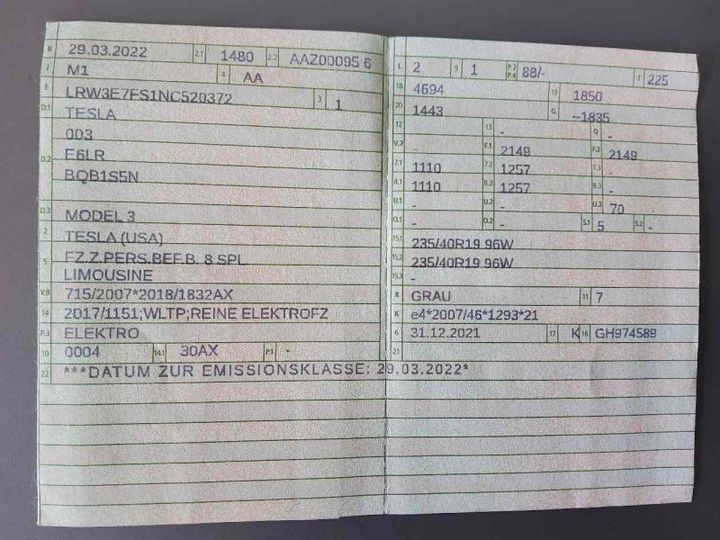 B 29.03.2022 2.1 1480 2.2 AAZ00095 6
J M1 4 AA
E LRW3E7FS1NC520372 3 1
D.1 TESLA
003
D.2 E6LR
BQB1S5N
D.3 MODEL 3
2 TESLA (USA)
5 FZ.Z.PERS.BEF.B. 8 SPL
LIMOUSINE
V.9 715/2007*2018/1832AX
14 2017/1151;WLTP;REINE ELEKTROFZ
P.3 ELEKTRO
10 0004 14.1 30AX P.1 -
22 ***DATUM ZUR EMISSIONSKLASSE: 29.03.2022*
L 2 9 1 P.2 P.4 88/- T 225
18 4694 19 1850
20 1443 G --1835
12 - 13 - Q -
V.7 - F.1 2149 F.2 2149
7.1 1110 7.2 1257 7.3 -
8.1 1110 8.2 1257 8.3 -
U.1 - U.2 - U.3 70
O.1 - O.2 - S.1 5 S.2 -
15.1 235/40R19 96W
15.2 235/40R19 96W
15.3 -
R GRAU 11 7
K e4*2007/46*1293*21
6 31.12.2021 17 K 16 GH974589
21